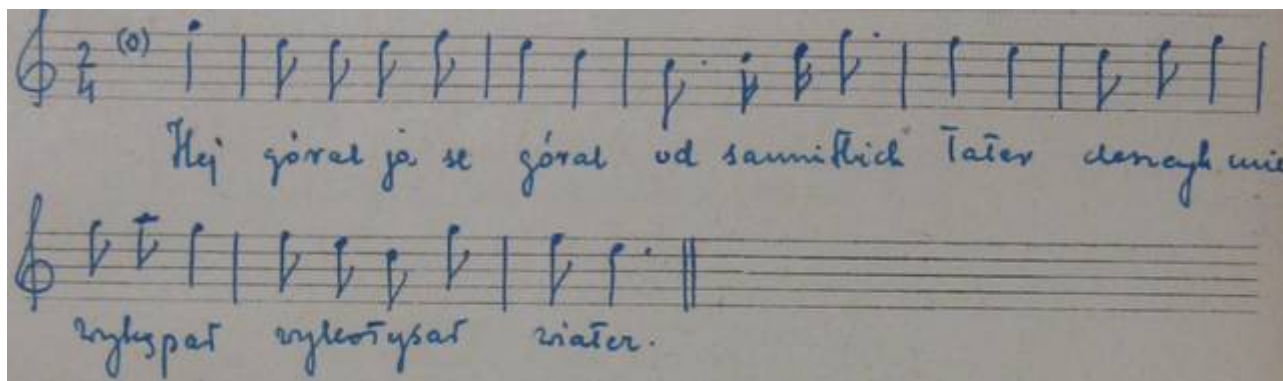 2/4 (0)
Hej góral ja se góral od samiutkich Tater descyk mie
wykąpał wykołysał wiater.